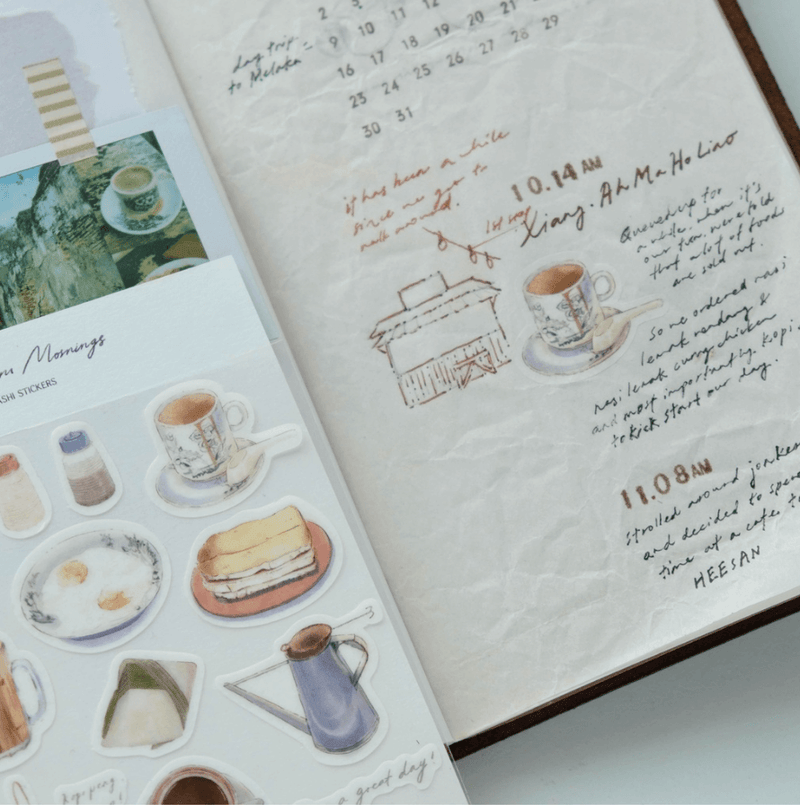 2 5
9 10 11 12
16 17 18 19 20 21
23 24 25 26 27 28 29
30 31
day trip
to Melaka =
it has been a while
since we got to
walk around.
1st stop
10.14 AM
Xiang. Ah Ma Ho Liao
Queued up for
a while. when it's
our turn. we're told
that a lot of foods
are sold out.
so we ordered nasi
lemak rendang &
nasi lemak curry chicken
and most importantly. Kopi.
to kick start our day.
11.08 AM
strolled around jonker
and decided to spend
time at a cafe.
HEESAN
Mornings
ASHI STICKERS
Kop peng
a great day!